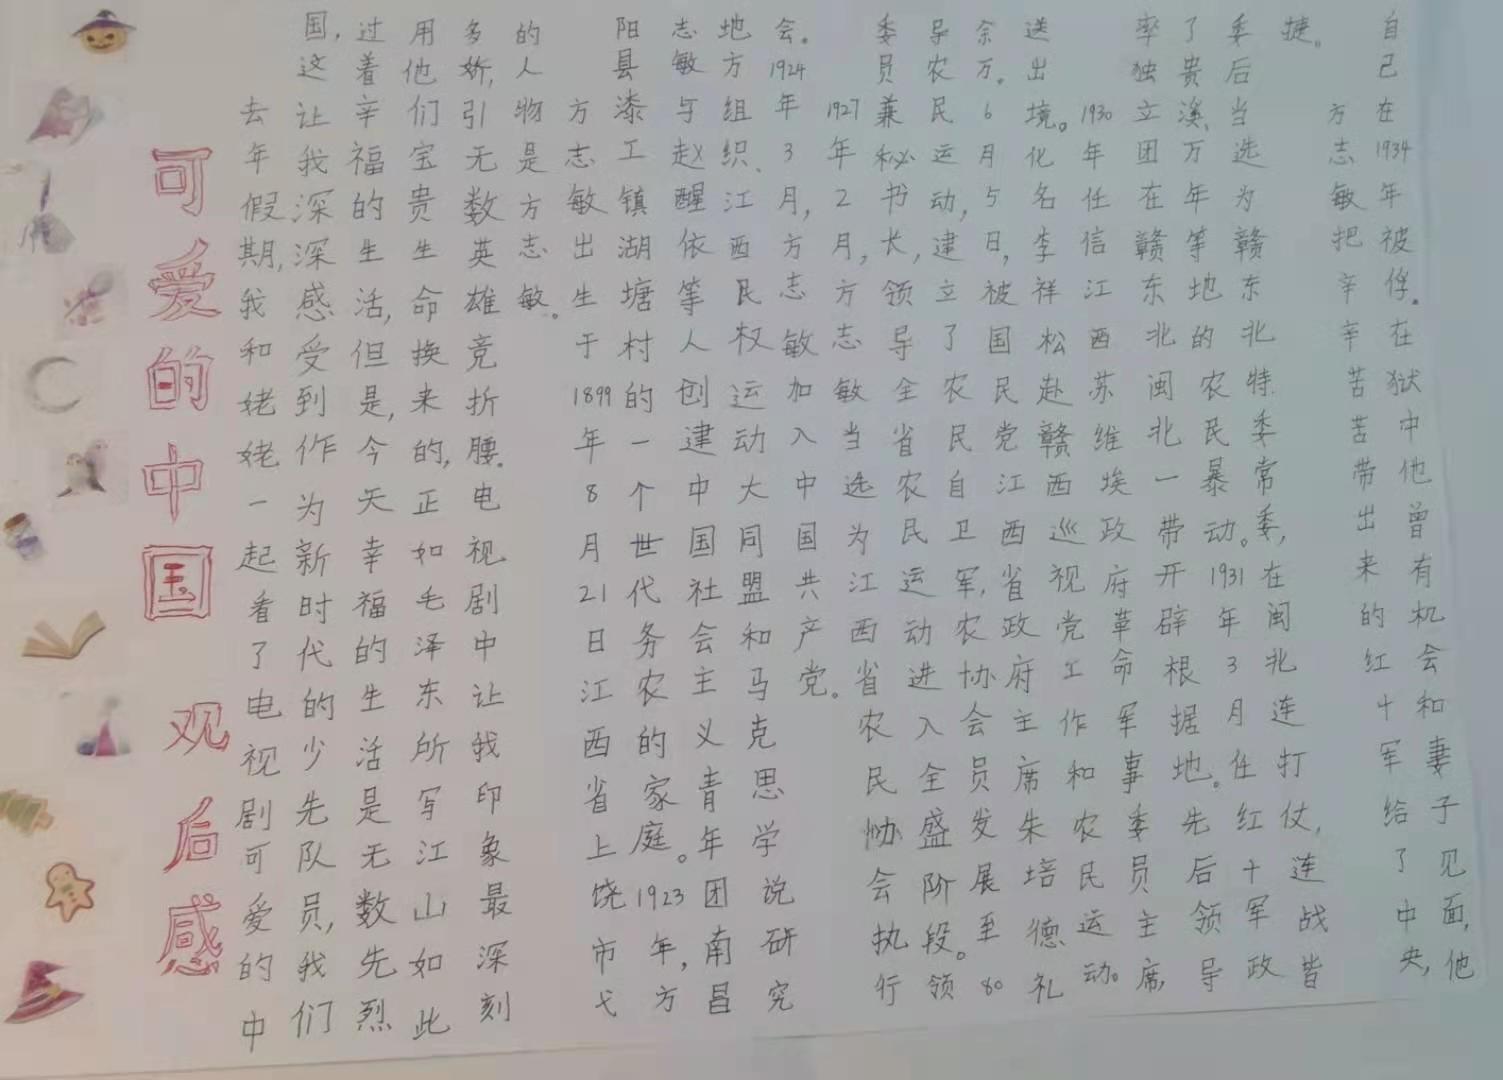 可爱的中国 观后感
去年假期,我和姥姥一起看了电视剧可爱的中
国,这让我深深感受到作为新时代的少先队员,我们
过着辛福的生活,但是,今天幸福的生活是无数先烈
用他们宝贵生命换来的,正如毛泽东所写江山如此
多娇,引无数英雄竞折腰.电视剧中让我印象最深刻
的人物是方志敏。
方志敏出生于1899年8月21日江西省上饶市弋
阳县漆工镇湖塘村的一个世代务农的家庭。1923年,方
志敏与赵醒依等人创建中国社会主义青年团南昌
地方组织、江西民权运动大同盟和马克思学说研究
会。1924年3月,方志敏加入中国共产党。
1927年2月,方志敏当选为江西省农民协会执行
委员兼秘书长,领导全省农民运动进入全盛阶段。领
导农民运动,建立了农民自卫军,农协会员发展至80
余万。6月5日,被国民党江西省政府主席朱培德礼
送出境。化名李祥松赴赣西巡视党工作和农民运动。
1930年任信江苏维埃政府革命军事委员主席,
率独立团在赣东北闽北一带开辟根据地。先后领导
了贵溪、万年等地的农民暴动。1931年3月任红十军政
委后当选为赣东北特委常委,在闽北连打仗,连战皆
捷。
方志敏把辛辛苦苦带出来的红十军给了中央,
自己在1934年被俘。在狱中他曾有机会和妻子见面,他